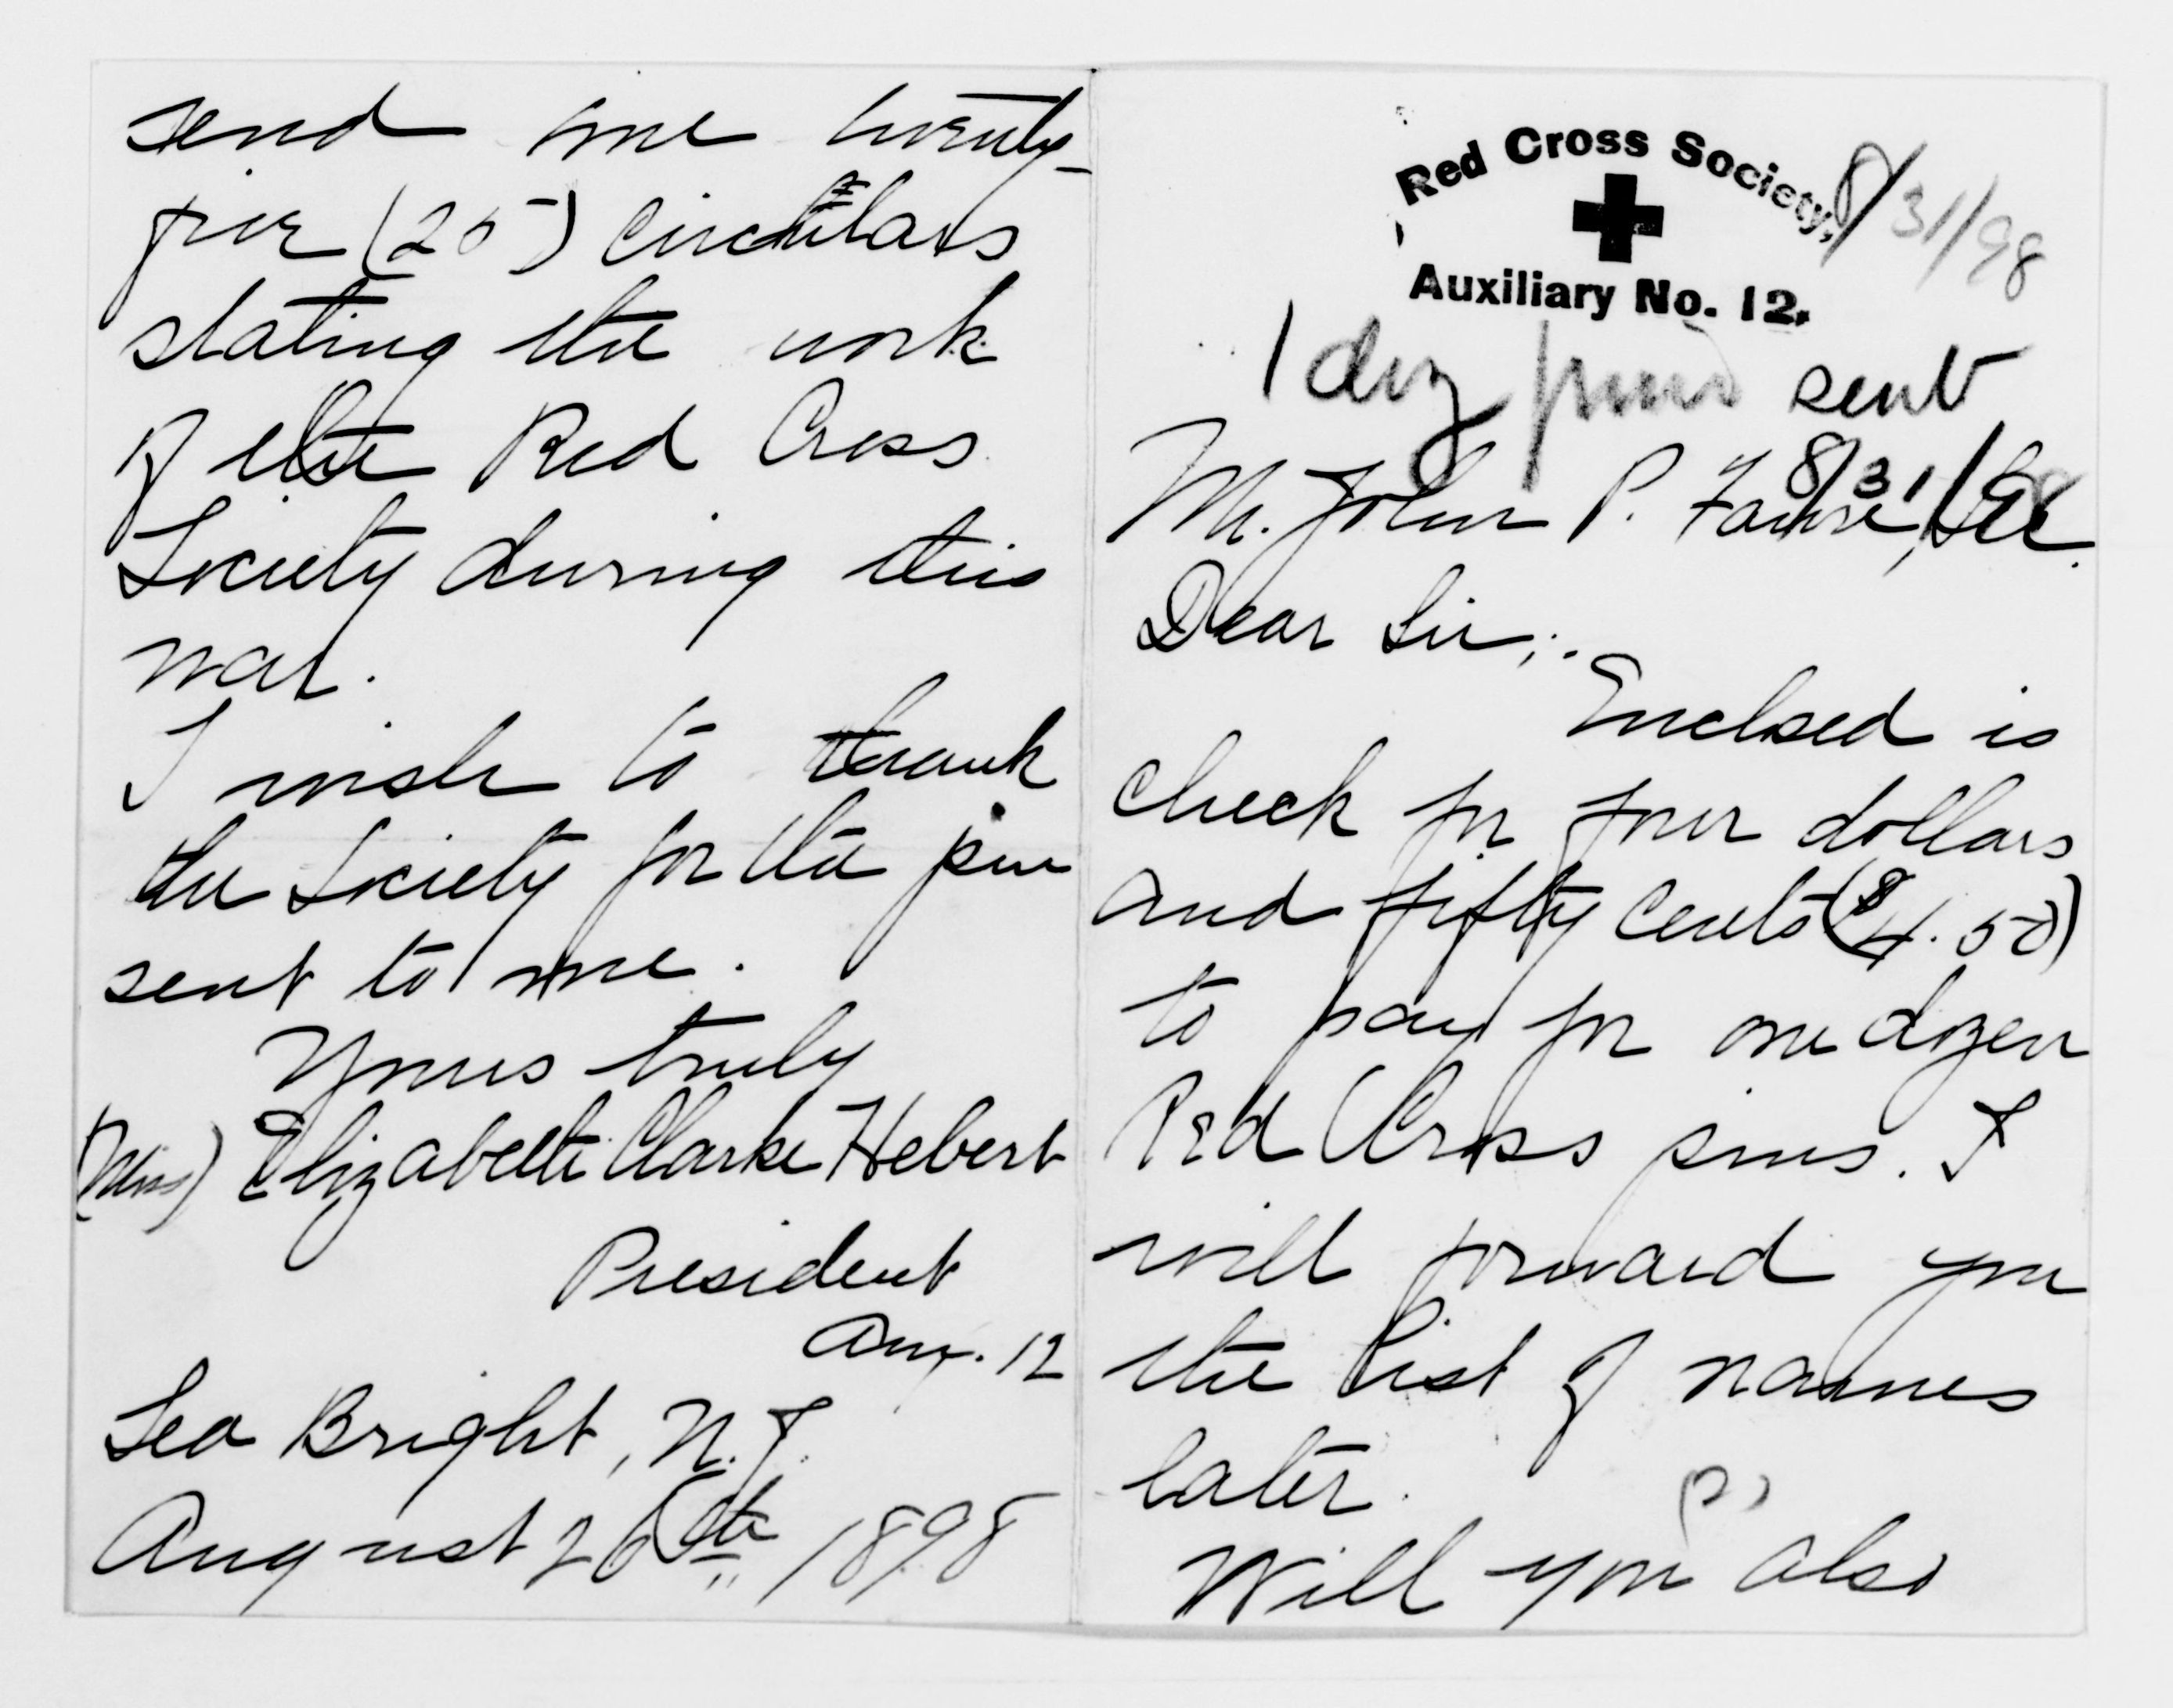 Red Cross Society,
Auxiliary No. 12.
8/31/98
1 doz pins sent
8/31/98
Mr. John P. Faure, Sec.
Dear Sir;.
Enclosed is
check for four dollars
and fifty cents ($4.50)
to pay for one dozen
Red Cross pins. I
will forward you
the list of names
later.
Will you also
send me twenty-
five (25) circulars
stating the work
of the Red Cross
Society during this
war.
I wish to thank
the Society for the pin
sent to me.
Yours truly
(Miss) Elizabeth Clarke Hebert
President
Aux. 12
Sea Bright, N.J.
August 26th 1898